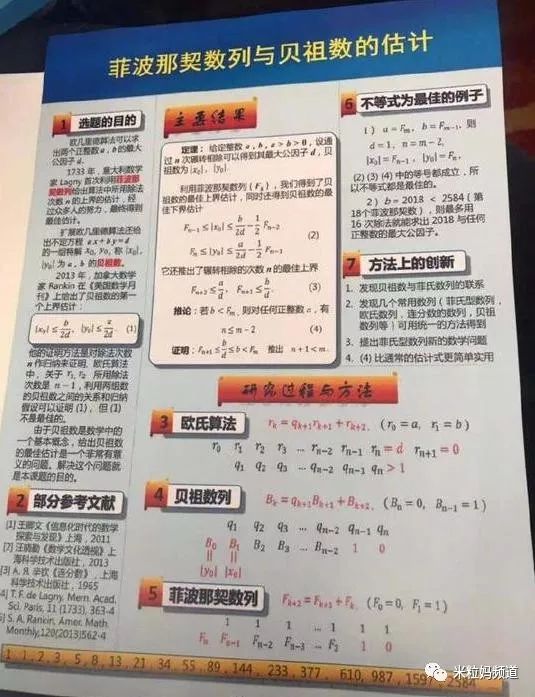 菲波那契数列与贝祖数的估计
1 选题的目的
欧几里德算法可以求
出两个正整数 a, b 的最大
公因子 d.
1733 年，意大利数学
家 Lagny 首次利用菲波那
契数列给出算中所用除法
次数 n 的上界的估计，经
过众多人的努力，最终得到
最佳估计。
扩展欧几里德算法还给
出不定方程 ax + by = d
的一组特解 x₀, y₀, 称 |x₀|,
|y₀| 为 a, b 的贝祖数。
2013 年，加拿大数学
家 Rankin 在《美国数学月
刊》上给出了贝祖数的第一
个上界估计：
|x₀| ≤ b/2d, |y₀| ≤ a/2d. (1)
他的证明方法是对除法次数
n 作归纳来证明. 欧氏算法
中，关于 r₁, r₂ 所用除法
次数是 n − 1，利用两组数
的贝祖数之间的关系和归纳
假设可以证明 (1)，但 (1)
不是最佳的。
由于贝祖数是数学中的
一个基本概念，给出贝祖数
的最佳估计是一个非常有意
义的问题。解决这个问题就
是本课题的目的。
2 部分参考文献
[1] 王卿文《信息化时代的数学
探索与发现》上海，2011
汪晓勤《数学文化透视》上
海科学技术出版社，2013
[3] А. Я. 辛钦《连分数》，上海
科学技术出版社，1965
4] T. F. de Lagny. Mem. Acad.
Sci. Paris, 11 (1733), 363-4
5] S. A. Rankin, Amer. Math.
Monthly,120(2013)562-4
主要结果
定理：给定整数 a, b, a > b > 0，设通
过 n 次辗转相除可以得到其最大公因子 d，贝
祖数为 |x₀|, |y₀|.
利用菲波那契数列 {Fₖ}，我们得到了贝
祖数的最佳上界估计，同时还得到贝祖数的最
佳下界估计
Fₙ₋₁ ≤ |x₀| ≤ b/2d − 1/2 Fₙ₋₂
(2)
Fₙ ≤ |y₀| ≤ a/2d − 1/2 Fₙ₋₁
它还推出了辗转相除的次数 n 的最佳上界
Fₙ₊₂ ≤ a/d, Fₙ₊₁ ≤ b/d. (3)
推论：若 b < Fₘ, 则对任何正整数 a, 有
n ≤ m − 2 (4)
证明：Fₙ₊₁ ≤ b/d ≤ b < Fₘ 推出 n + 1 < m.
6 不等式为最佳的例子
1) a = Fₘ, b = Fₘ₋₁, 则
d = 1, n = m − 2,
|x₀| = Fₙ₋₁, |y₀| = Fₙ.
(2) (3) (4) 中的等号都成立，所
以不等式都是最佳的。
2) b = 2018 < 2584 (第
18个菲波那契数)，则最多用
16 次除法就能求出 2018 与任何
正整数的最大公因子。
7 方法上的创新
1. 发现贝祖数与菲氏数列的联系
2. 发现几个常用数列 (菲氏型数列，
欧氏数列，连分数的数列，贝祖
数列等) 可用统一的方法得到
3. 提出菲氏型数列新的数学问题
4. (4) 比通常的估计式更简单实用
研究过程与方法
3 欧氏算法 rₖ = qₖ₊₁rₖ₊₁ + rₖ₊₂, (r₀ = a, r₁ = b)
r₀ r₁ r₂ r₃ ... rₙ₋₂ rₙ₋₁ rₙ = d rₙ₊₁ = 0
q₁ q₂ q₃ ... qₙ₋₂ qₙ₋₁ qₙ > 1
4 贝祖数列 Bₖ = qₖ₊₁Bₖ₊₁ + Bₖ₊₂, (Bₙ = 0, Bₙ₋₁ = 1)
q₁ q₂ q₃ ... qₙ₋₂ qₙ₋₁ qₙ
B₀ B₁ B₂ B₃ ... Bₙ₋₂ 1 0
|| ||
|y₀| |x₀|
5 菲波那契数列 Fₖ₊₂ = Fₖ₊₁ + Fₖ, (F₀ = 0, F₁ = 1)
1 1 1 ... 1 1 1
Fₙ Fₙ₋₁ Fₙ₋₂ Fₙ₋₃ ... F₂ 1 0
1, 1, 2, 3, 5, 8, 13, 21, 34, 55, 89, 144, 233, 377, 610, 987, 1597, 2584
米粒妈频道